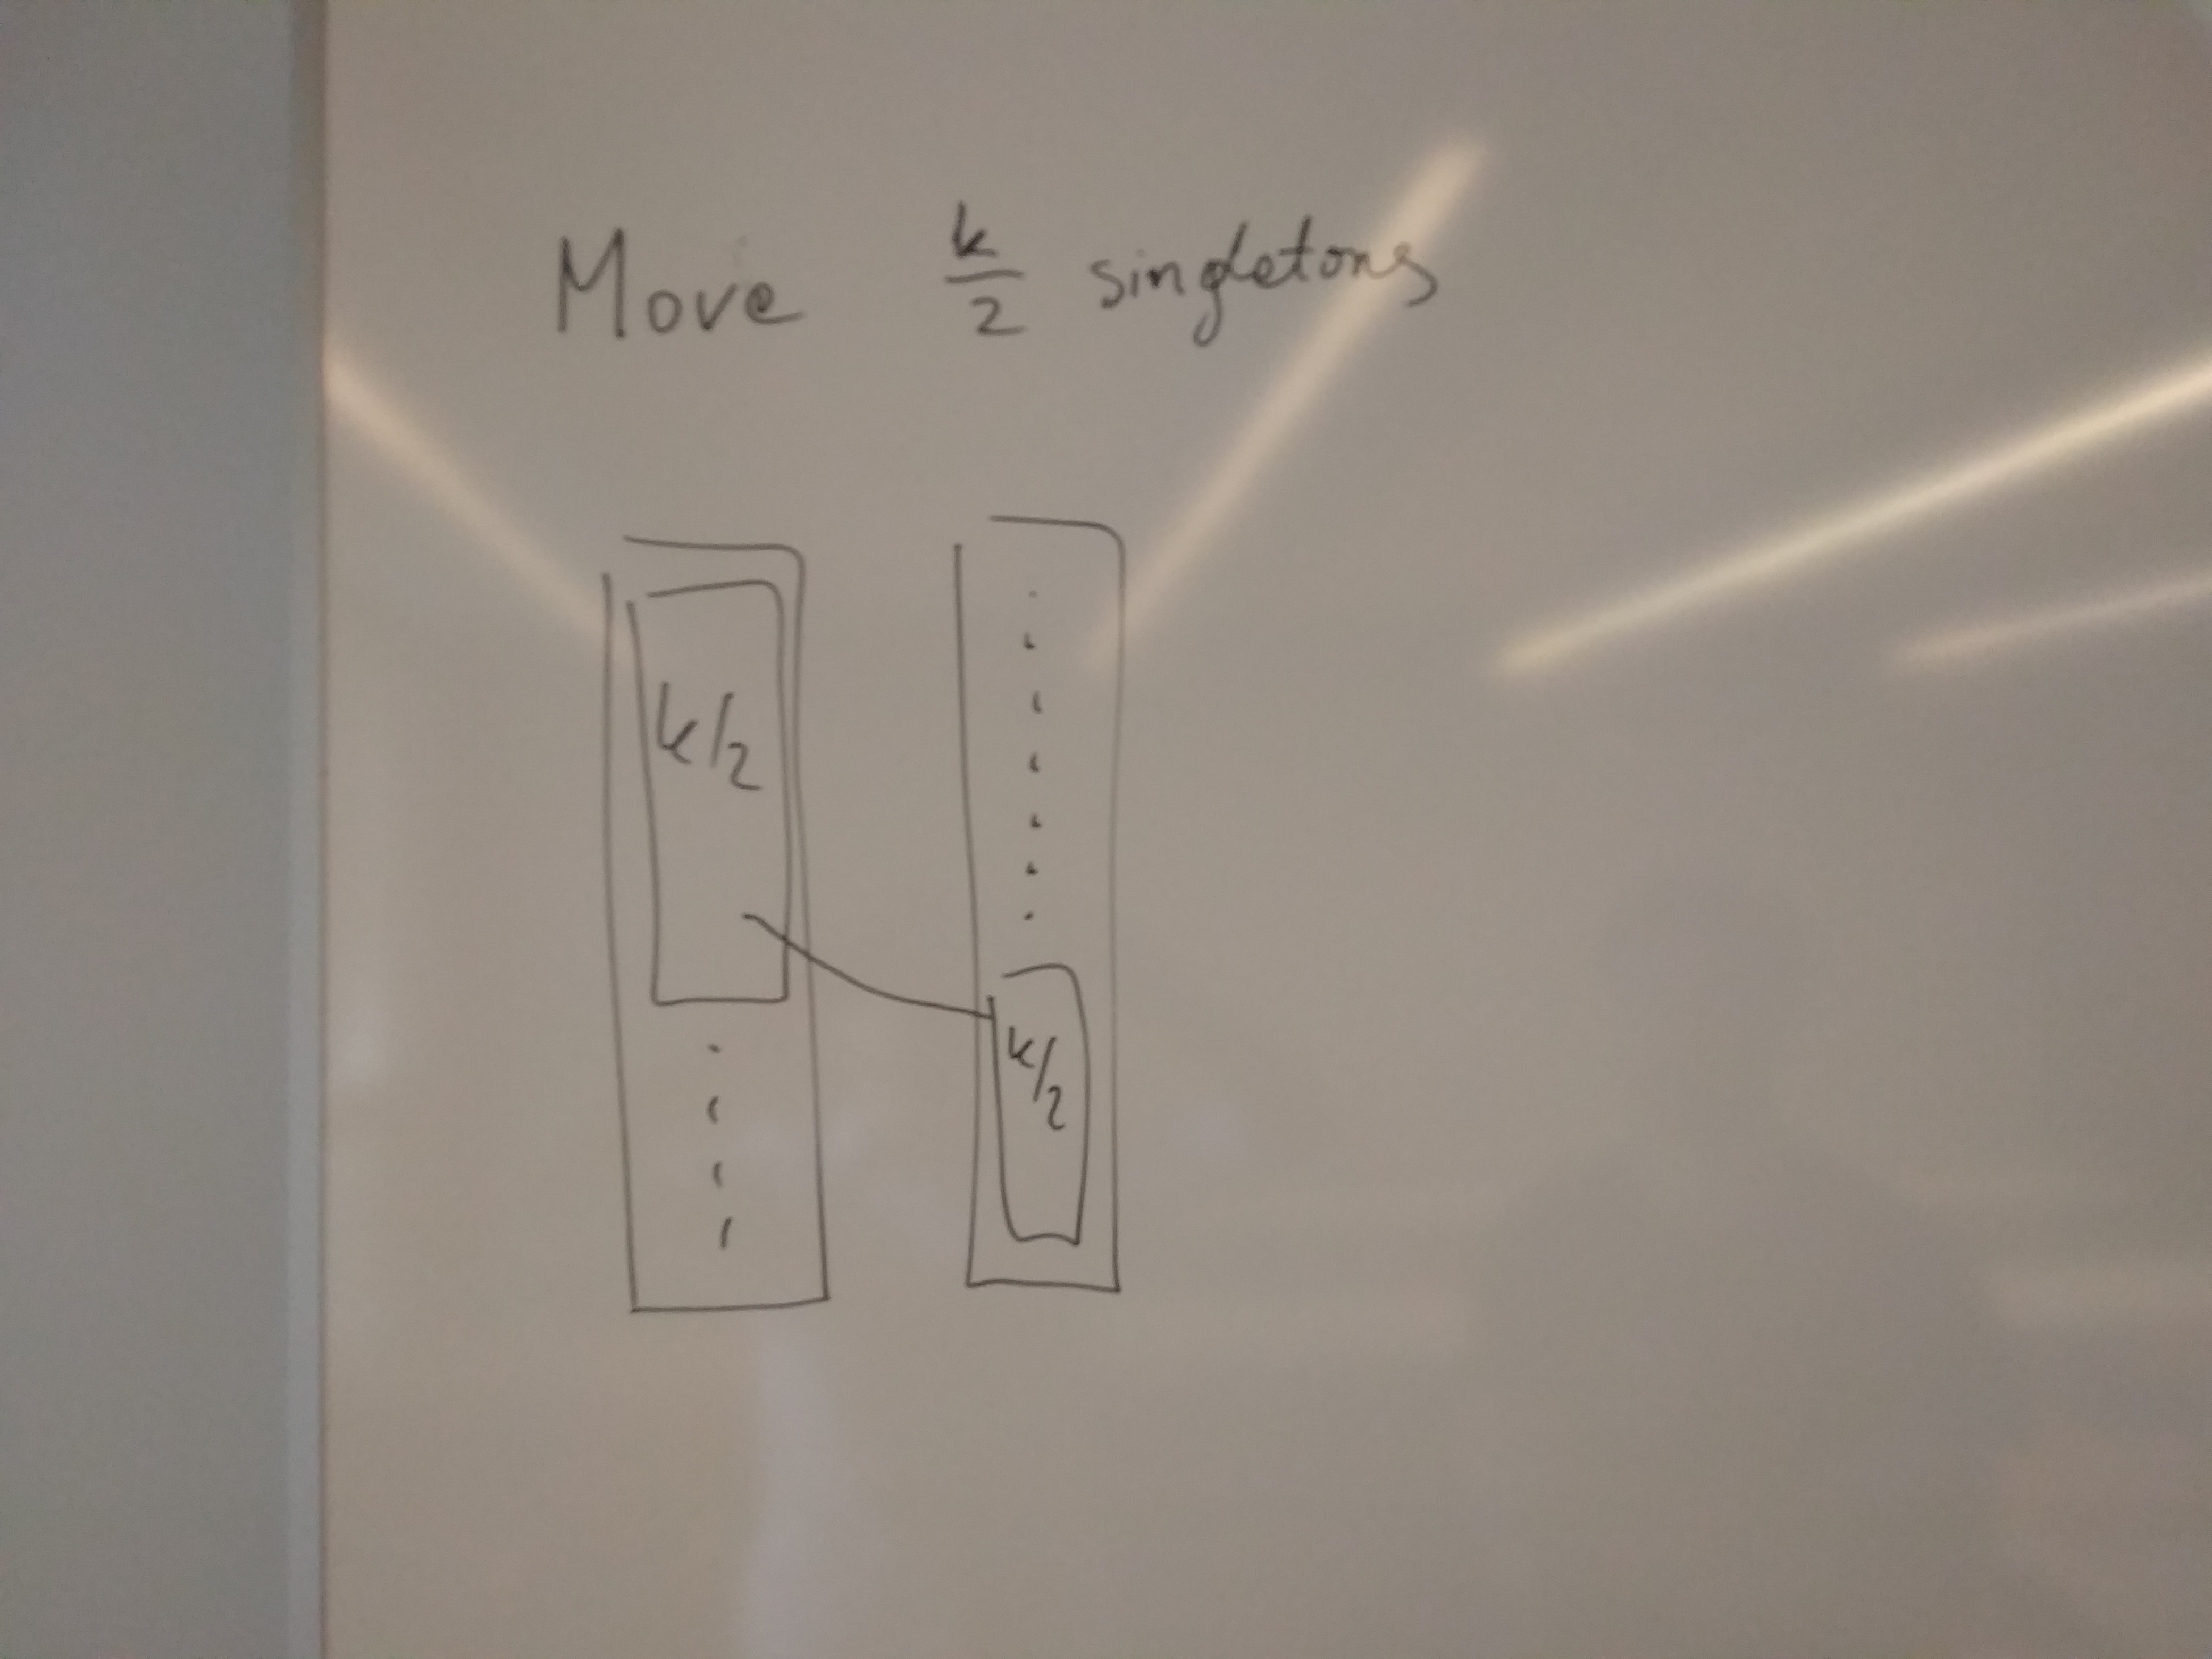 Move k/2 singletons
k/2
k/2